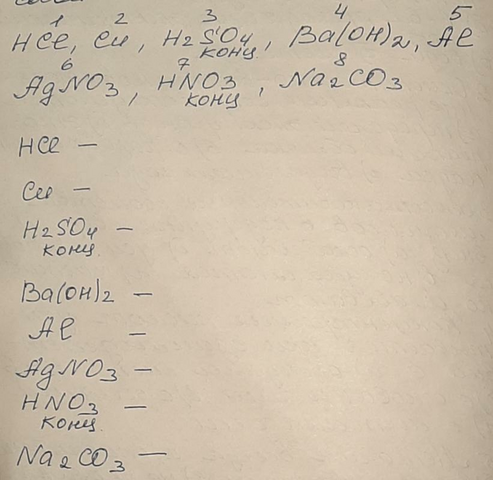 1 2 3 4 5
HCl, Cu, H2SO4 конц, Ba(OH)2, Al
6 7 8
AgNO3, HNO3 конц, Na2CO3
HCl —
Cu —
H2SO4 —
конц
Ba(OH)2 —
Al —
AgNO3 —
HNO3 —
конц
Na2CO3 —